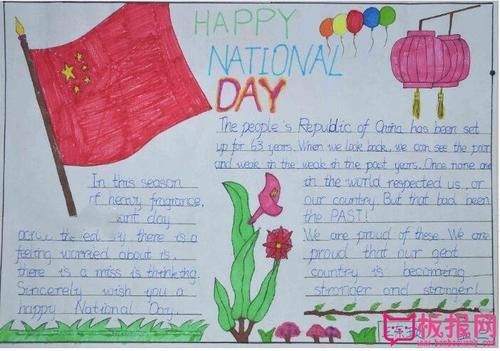 HAPPY
NATIONAL
DAY
The people's Republic of China has been set
up for 63 years. When we look back, we can see the poor
and weak in the weak in the past years. Once none
in the world respected us, or
our country. But that had been
the PAST!
We are proud of these. We are
proud that our
country is becoming
stronger and stronger!
In this season
of heavy fragrance,
day
the there is a
feeling worried about is,
there is a miss is thinking.
Sincerely wish you a
happy National Day.
板报网